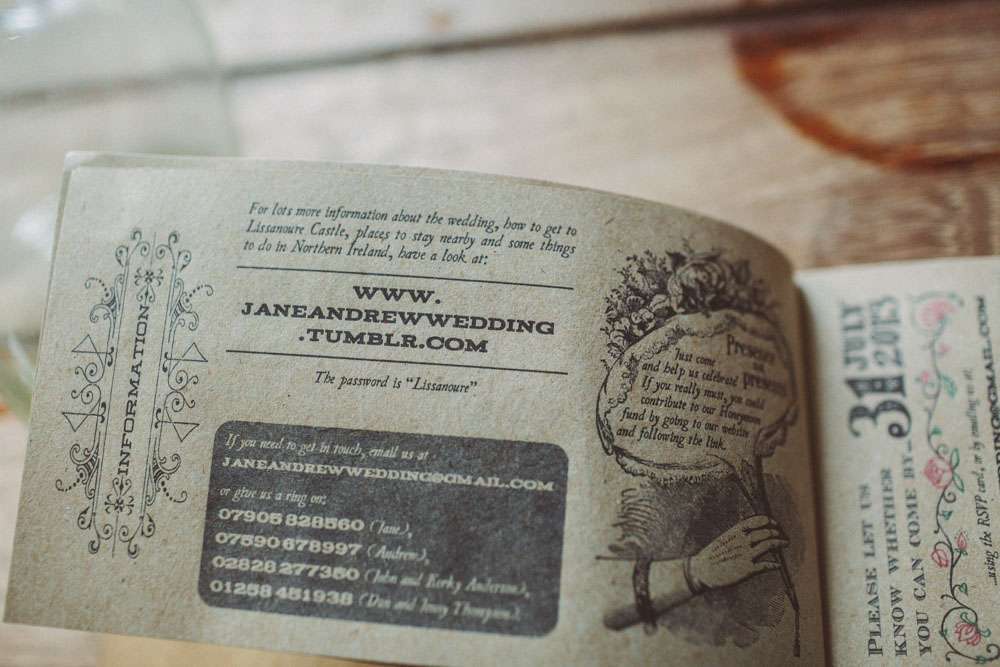 INFORMATION
For lots more information about the wedding, how to get to
Lissanoure Castle, places to stay nearby and some things
to do in Northern Ireland, have a look at:
WWW.
JANEANDREWWEDDING
.TUMBLR.COM
The password is “Lissanoure”
If you need to get in touch, email us at
JANEANDREWWEDDING@GMAIL.COM
or give us a ring on:
07905 828560 (Jane),
07590 678997 (Andrew),
02828 277380 (John and Kerky Anderson),
01258 451938 (Don and Thompson).
Presence
not
presents
Just come
and help us celebrate
If you really must, you could
contribute to our Honeymoon
fund by going to our website
and following the link.
PLEASE LET US
KNOW WHETHER
YOU CAN COME BY
31 JULY
2013
...using the RSVP card, or by emailing us at:
@GMAIL.COM